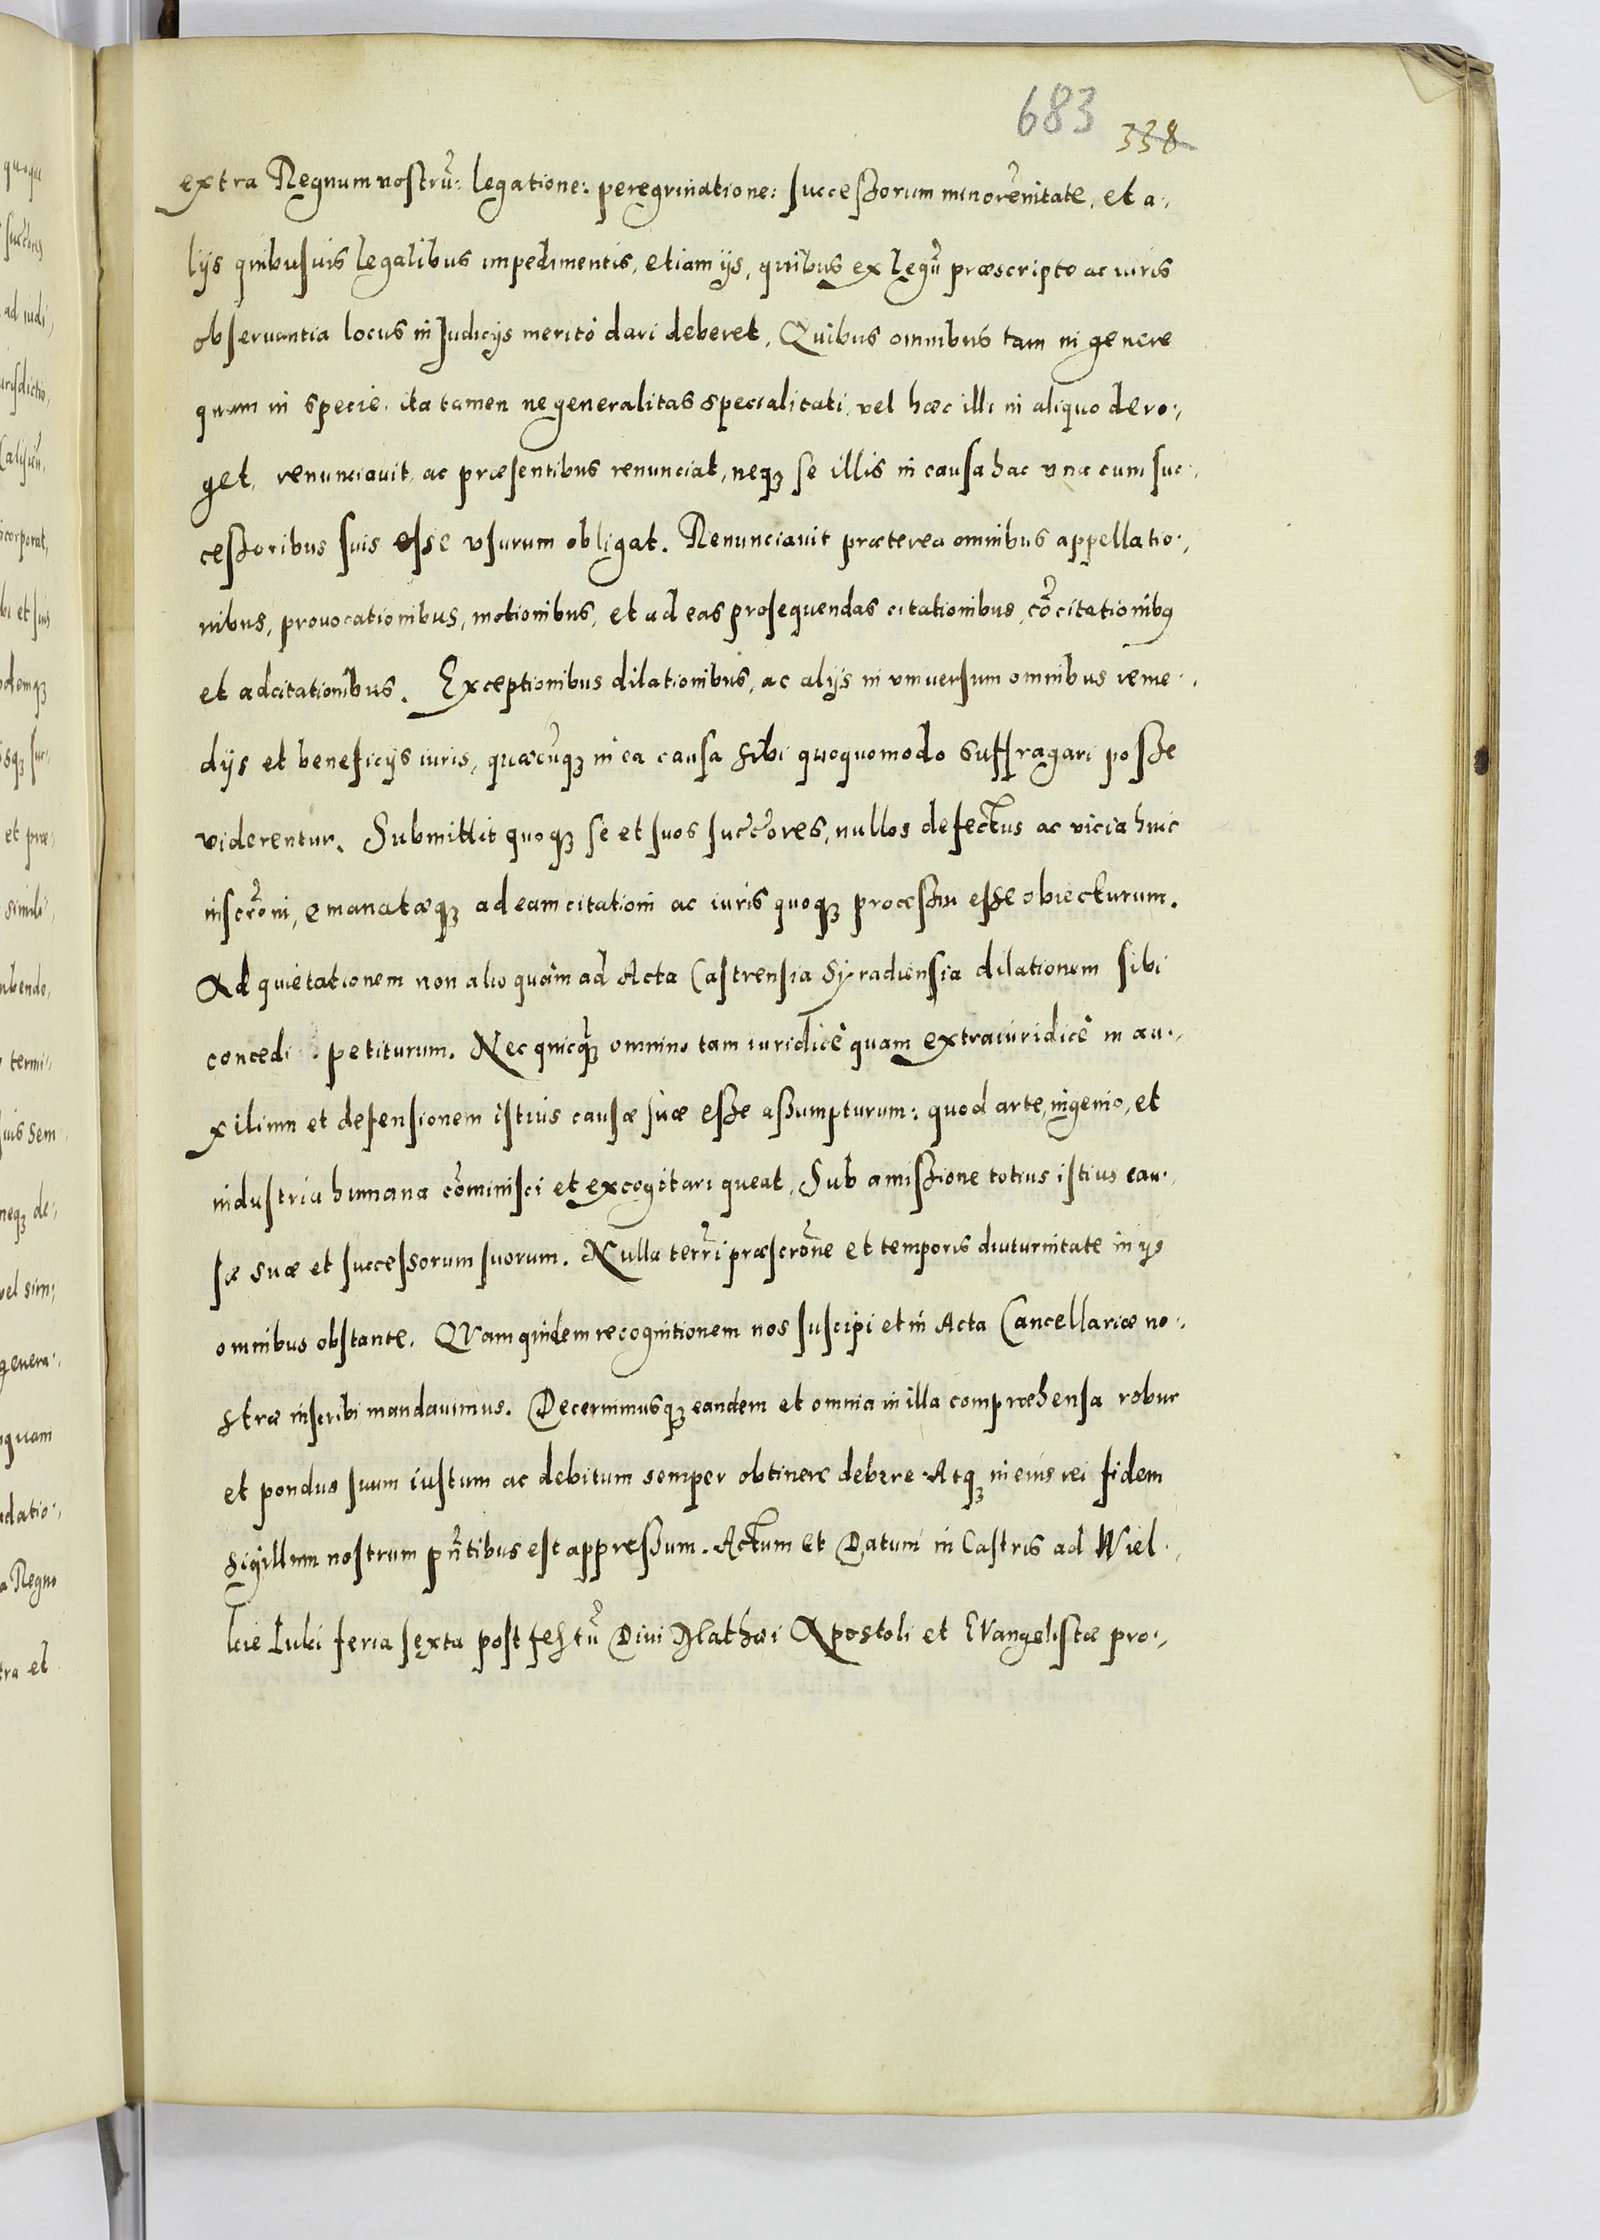 683 338
extra Regnum nostrũ: legatione: peregrinatione: successorum minorẽnitate, et a,
lijs quibusuis legalibus impedimentis, etiam ijs, quibus ex legũ præscripto ac iuris
obseruantia locus in Judicijs meritò dari deberet, Quibus omnibus tam in genere
quam in specie. ita tamen ne generalitas specialitati, vel hæc illi in aliquo dero,
get, renunciauit, ac præsentibus renunciat, neqꝫ se illis in causa hac vna cum suc,
cessoribus suis esse vsurum obligat. Renunciauit præterea omnibus appellatio,
nibus, prouocationibus, motionibus, et ad eas prosequendas citationibus, cõcitationibꝰ
et adcitationibus. Exceptionibus dilationibus, ac alijs in vniuersum omnibus reme,
dijs et beneficijs iuris, quæcũqꝫ in ea causa sibi quoquomodo suffragari posse
viderentur. Submittit quoqꝫ se et suos succ̃ores, nullos defectus ac vicia huic
inscrõni, emanatæqꝫ ad eam citationi ac iuris quoqꝫ processui esse obiecturum.
Ad quietationem non alio quàm ad Acta Castrensia Syradiensia dilationem sibi
concedi petiturum. Nec quicq̃ꝫ omnino tam iuridicè quam extraiuridicè in au,
xilium et defensionem istius causæ suæ esse assumpturum: quod arte, ingenio, et
industria humana cõminisci et excogitari queat, Sub amissione totius istius cau,
sæ suæ et successorum suorum. Nulla terrĩ præscrõne et temporis diuturnitate in ijs
omnibus obstante. QVam quidem recognitionem nos suscipi et in Acta Cancellariæ no,
stræ inscribi mandauimus. Decernimusqꝫ eandem et omnia in illa compræhensa robur
et pondus suum iustum ac debitum semper obtinere debere. Atqꝫ in eius rei fidem
Sigillum nostrum pñtibus est appressum. Actum et Datum in Castris ad Wiel,
kie Luki feria sexta post festũ Diui Mathæi Apostoli et EVangelistæ pro,